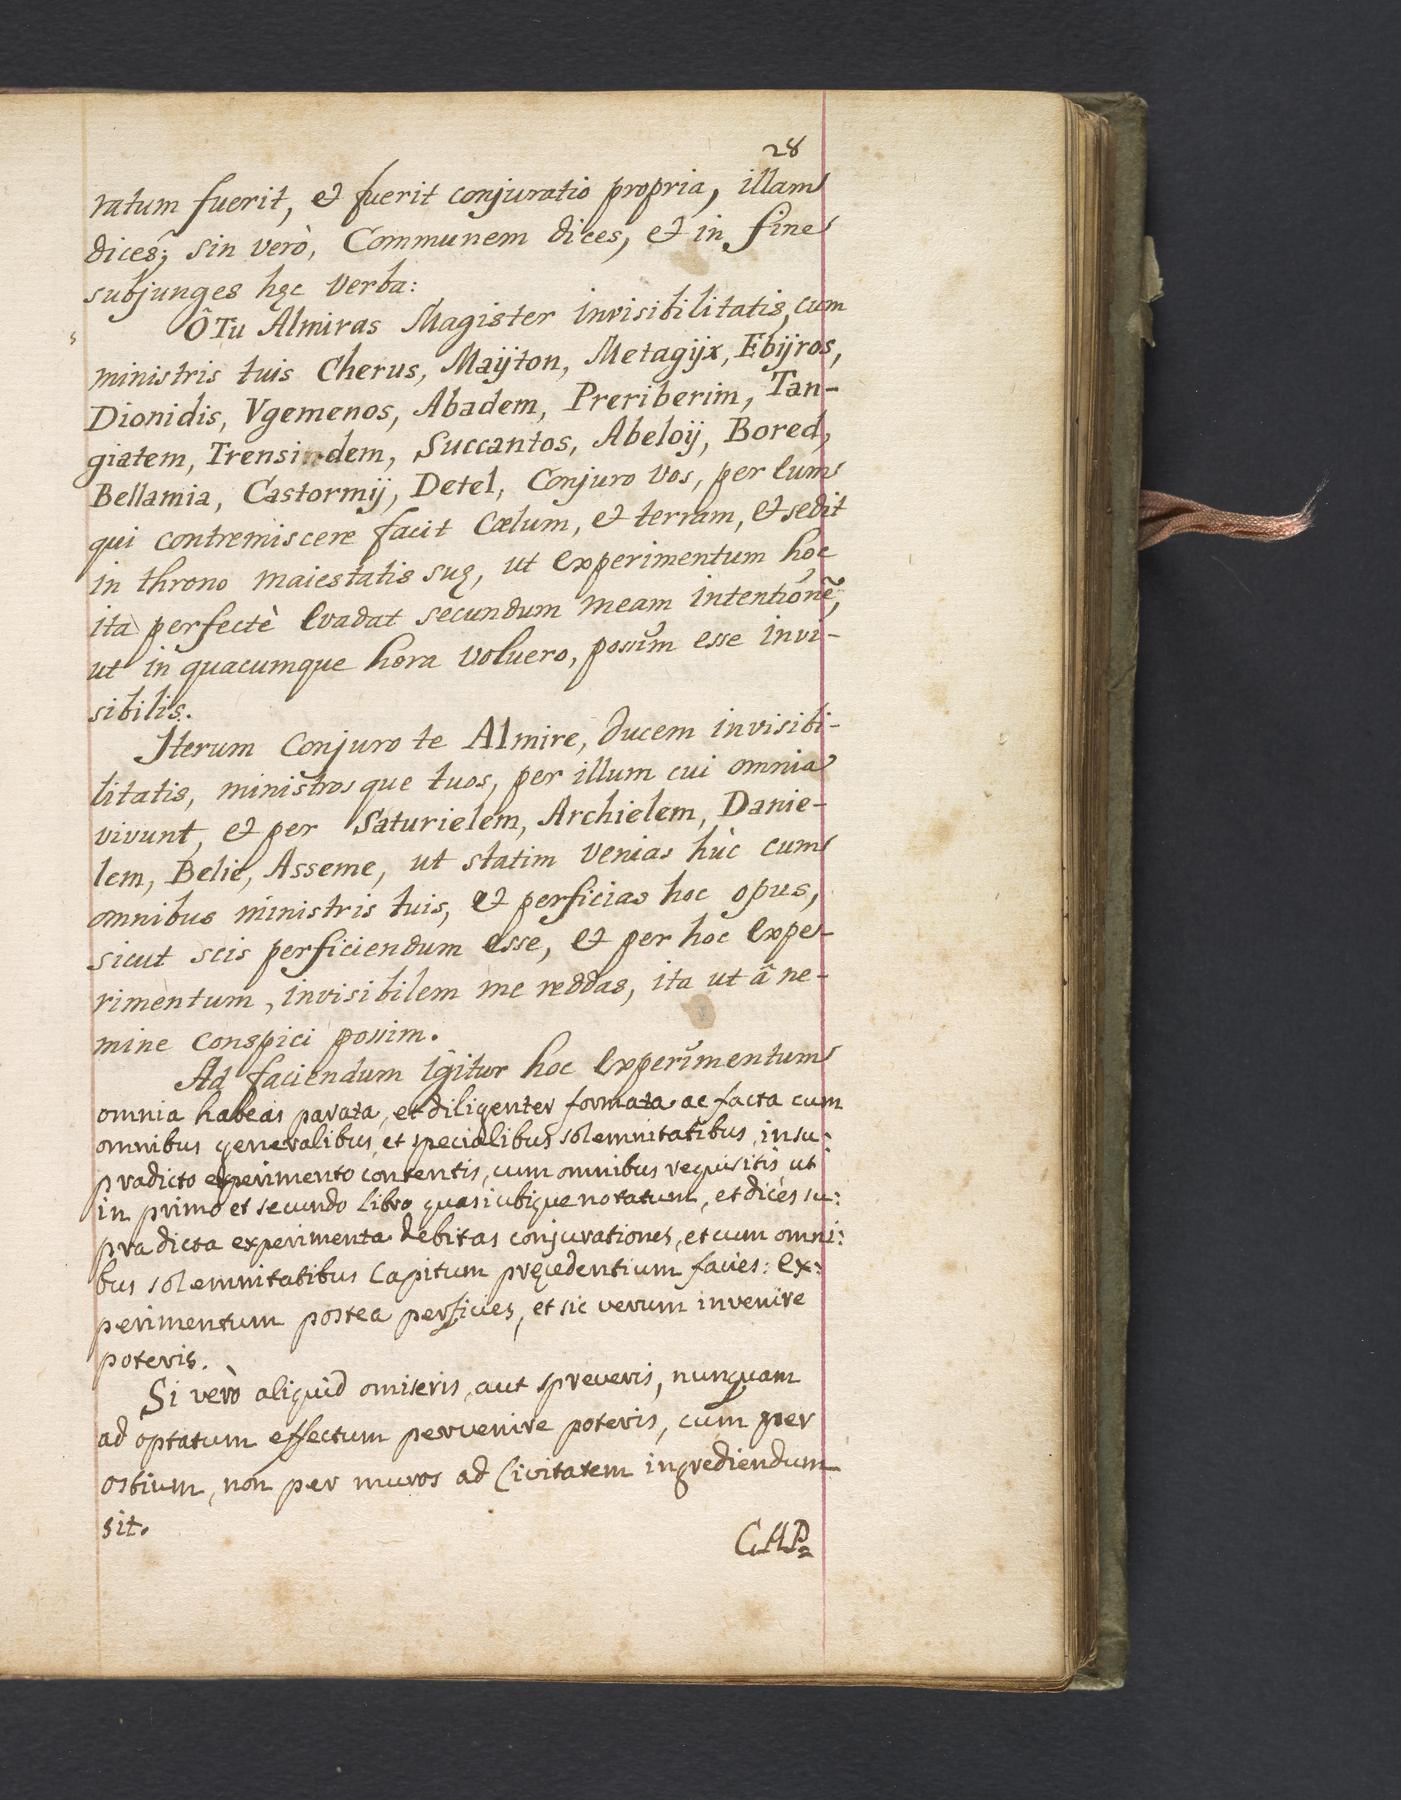 28
ratum fuerit, et fuerit conjuratio propria, illam
dices; sin verò, Communem dices, et in fine
subjunges hęc verba:
Ô Tu Almiras Magister invisibilitatis, cum
ministris tuis Cherus, Maÿton, Metagijx, Ebijros,
Dionidis, Vgemenos, Abadem, Preriberim, Tan-
giatem, Trensindem, Succantos, Abeloij, Bored,
Bellamia, Castormij, Detel, Conjuro vos, per eum
qui contremiscere facit Cœlum, et terram, et sedit
in throno maiestatis suę, ut experimentum hoc
ita perfectè evadat secundum meam intentionẽ,
ut in quacumque hora voluero, possim esse invi-
sibilis.
Iterum conjuro te Almire, ducem invisibi-
litatis, ministrosque tuos, per illum cui omnia
vivunt, et per Saturielem, Archielem, Danie-
lem, Belie, Asseme, ut statim venias hùc cum
omnibus ministris tuis, et perficias hoc opus,
sicut scis perficiendum esse, et per hoc expe-
rimentum, invisibilem me reddas, ita ut â ne-
mine conspici possim.
Ad faciendum igitur hoc experimentum
omnia habeas parata, et diligenter formata ac facta cum
omnibus generalibus, et specialibus solemnitatibus, in su:
pradicto experimento contentis, cum omnibus requisitis ut
in primo et secundo libro quasi ubique notatum, et dices su:
pra dicta experimenta debitas conjurationes, et cum omni:
bus solemnitatibus Capitum pręcedentium facies: ex:
perimentum postea perficies, et sic verum invenire
poteris.
Si verò aliquid omiseris, aut spreveris, nunquam
ad optatum effectum pervenire poteris, cum per
ostium, non per muros ad Civitatem ingrediendum
sit.
CAP.